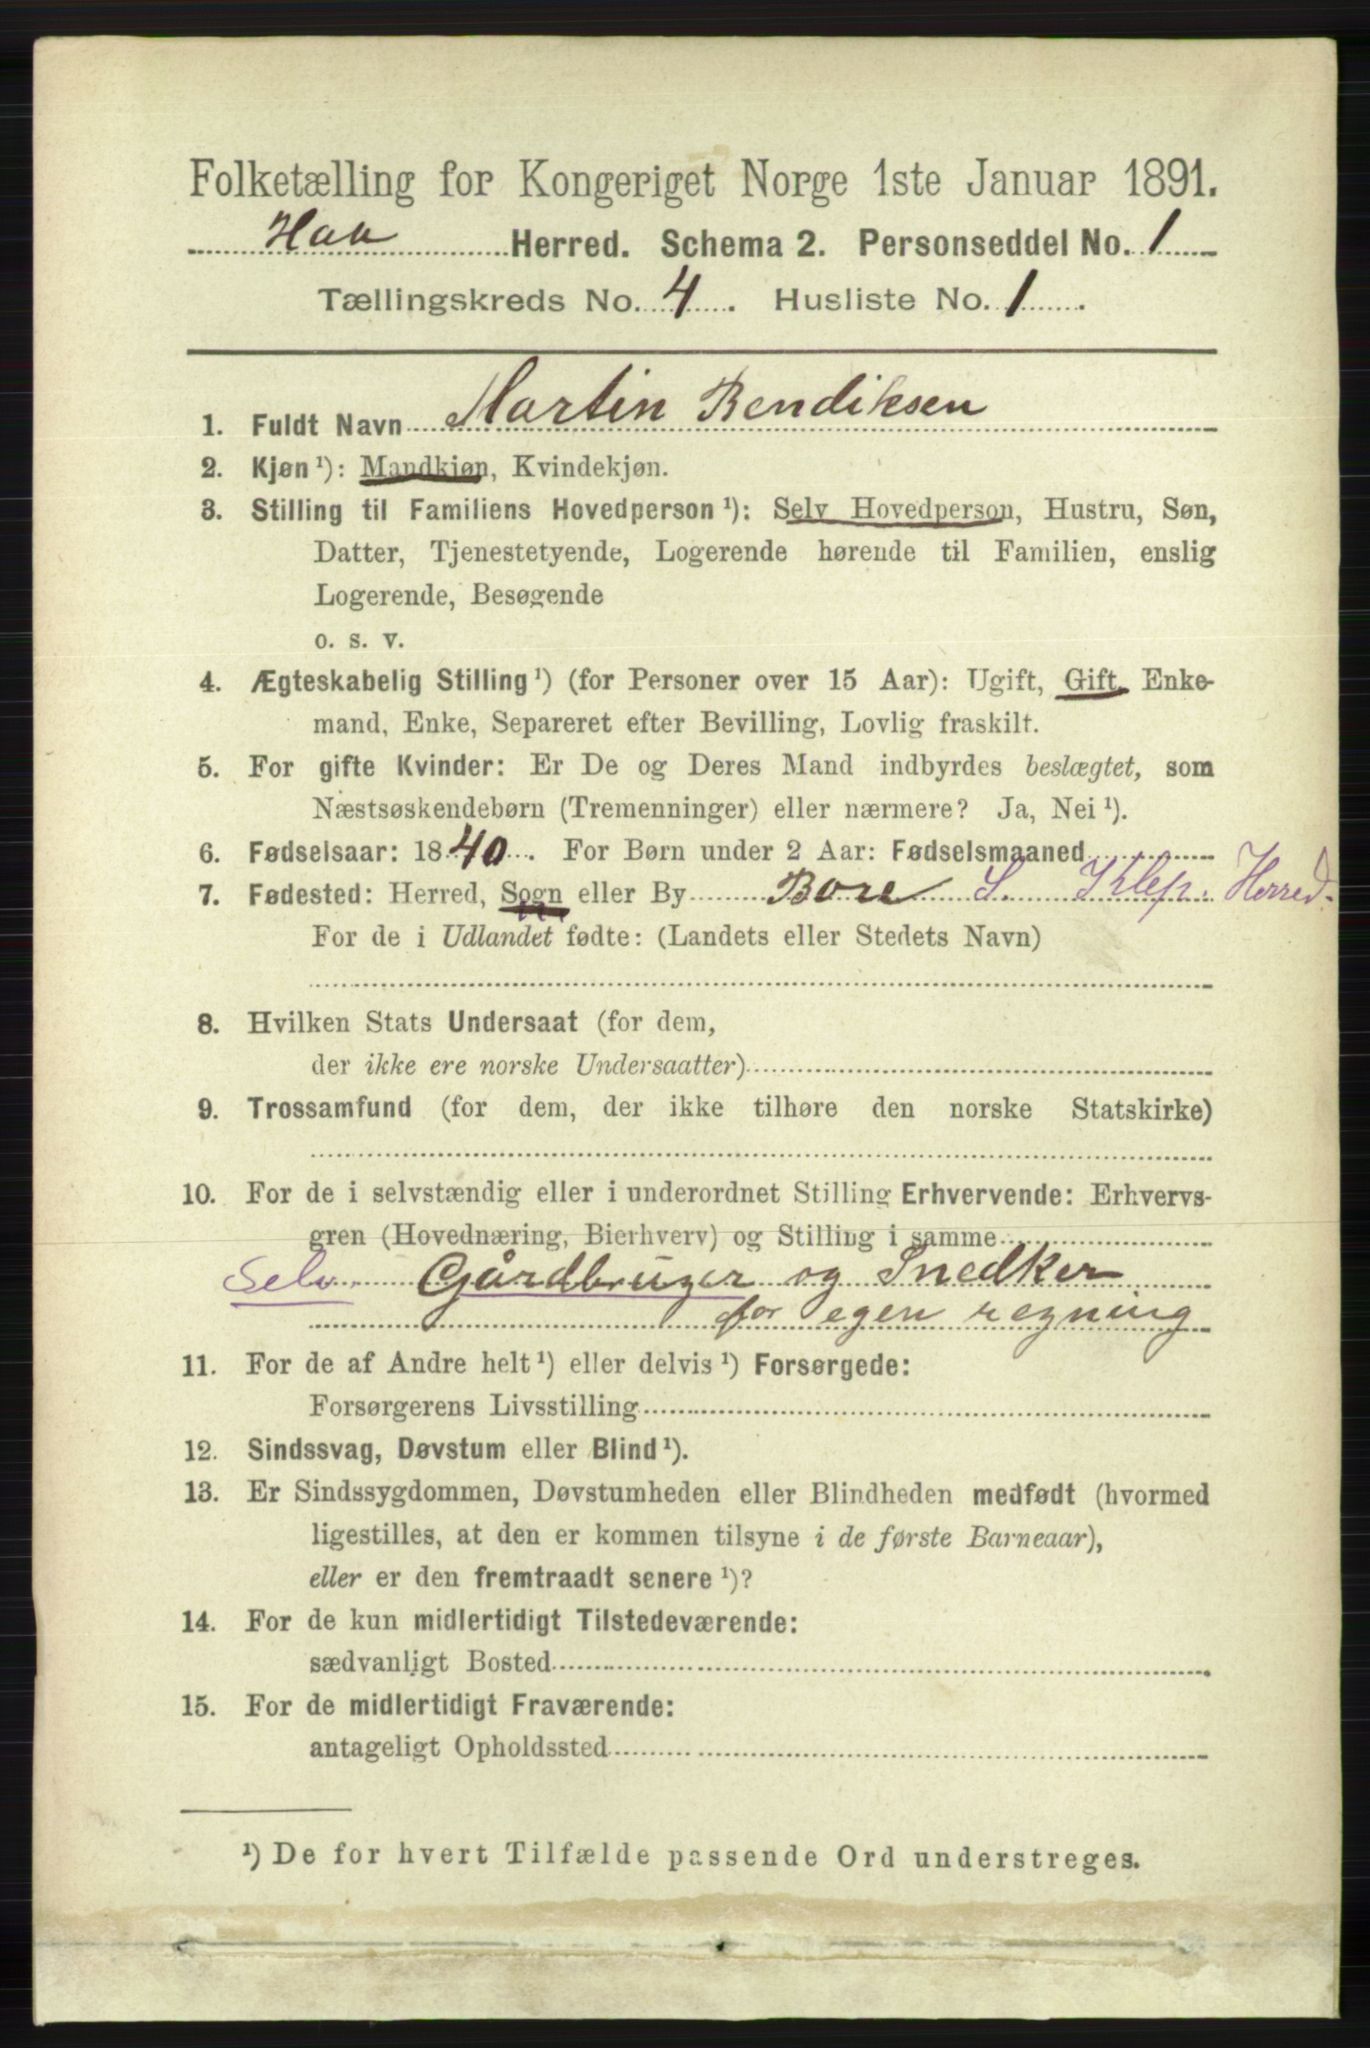 Folketælling for Kongeriget Norge 1ste Januar 1891.
Haa Herred. Schema 2. Personseddel No. 1
Tællingskreds No. 4. Husliste No. 1.
1. Fuldt Navn Martin Bendiksen
2. Kjøn¹): Mandkjøn, Kvindekjøn.
3. Stilling til Familiens Hovedperson¹): Selv Hovedperson, Hustru, Søn,
Datter, Tjenestetyende, Logerende hørende til Familien, enslig
Logerende, Besøgende
o. s. v.
4. Ægteskabelig Stilling¹) (for Personer over 15 Aar): Ugift, Gift, Enke-
mand, Enke, Separeret efter Bevilling, Lovlig fraskilt.
5. For gifte Kvinder: Er De og Deres Mand indbyrdes beslægtet, som
Næstsøskendebørn (Tremenninger) eller nærmere? Ja, Nei¹).
6. Fødselsaar: 1840. For Børn under 2 Aar: Fødselsmaaned
7. Fødested: Herred, Sogn eller By Bore S. Klep. Herred.
For de i Udlandet fødte: (Landets eller Stedets Navn)
8. Hvilken Stats Undersaat (for dem,
der ikke ere norske Undersaatter)
9. Trossamfund (for dem, der ikke tilhøre den norske Statskirke)
10. For de i selvstændig eller i underordnet Stilling Erhvervende: Erhvervs-
gren (Hovednæring, Bierhverv) og Stilling i samme
Selv. Gårdbruger og Snedker
for egen regning
11. For de af Andre helt¹) eller delvis¹) Forsørgede:
Forsørgerens Livsstilling
12. Sindssvag, Døvstum eller Blind¹).
13. Er Sindssygdommen, Døvstumheden eller Blindheden medfødt (hvormed
ligestilles, at den er kommen tilsyne i de første Barneaar),
eller er den fremtraadt senere¹)?
14. For de kun midlertidigt Tilstedeværende:
sædvanligt Bosted
15. For de midlertidigt Fraværende:
antageligt Opholdssted
¹) De for hvert Tilfælde passende Ord understreges.